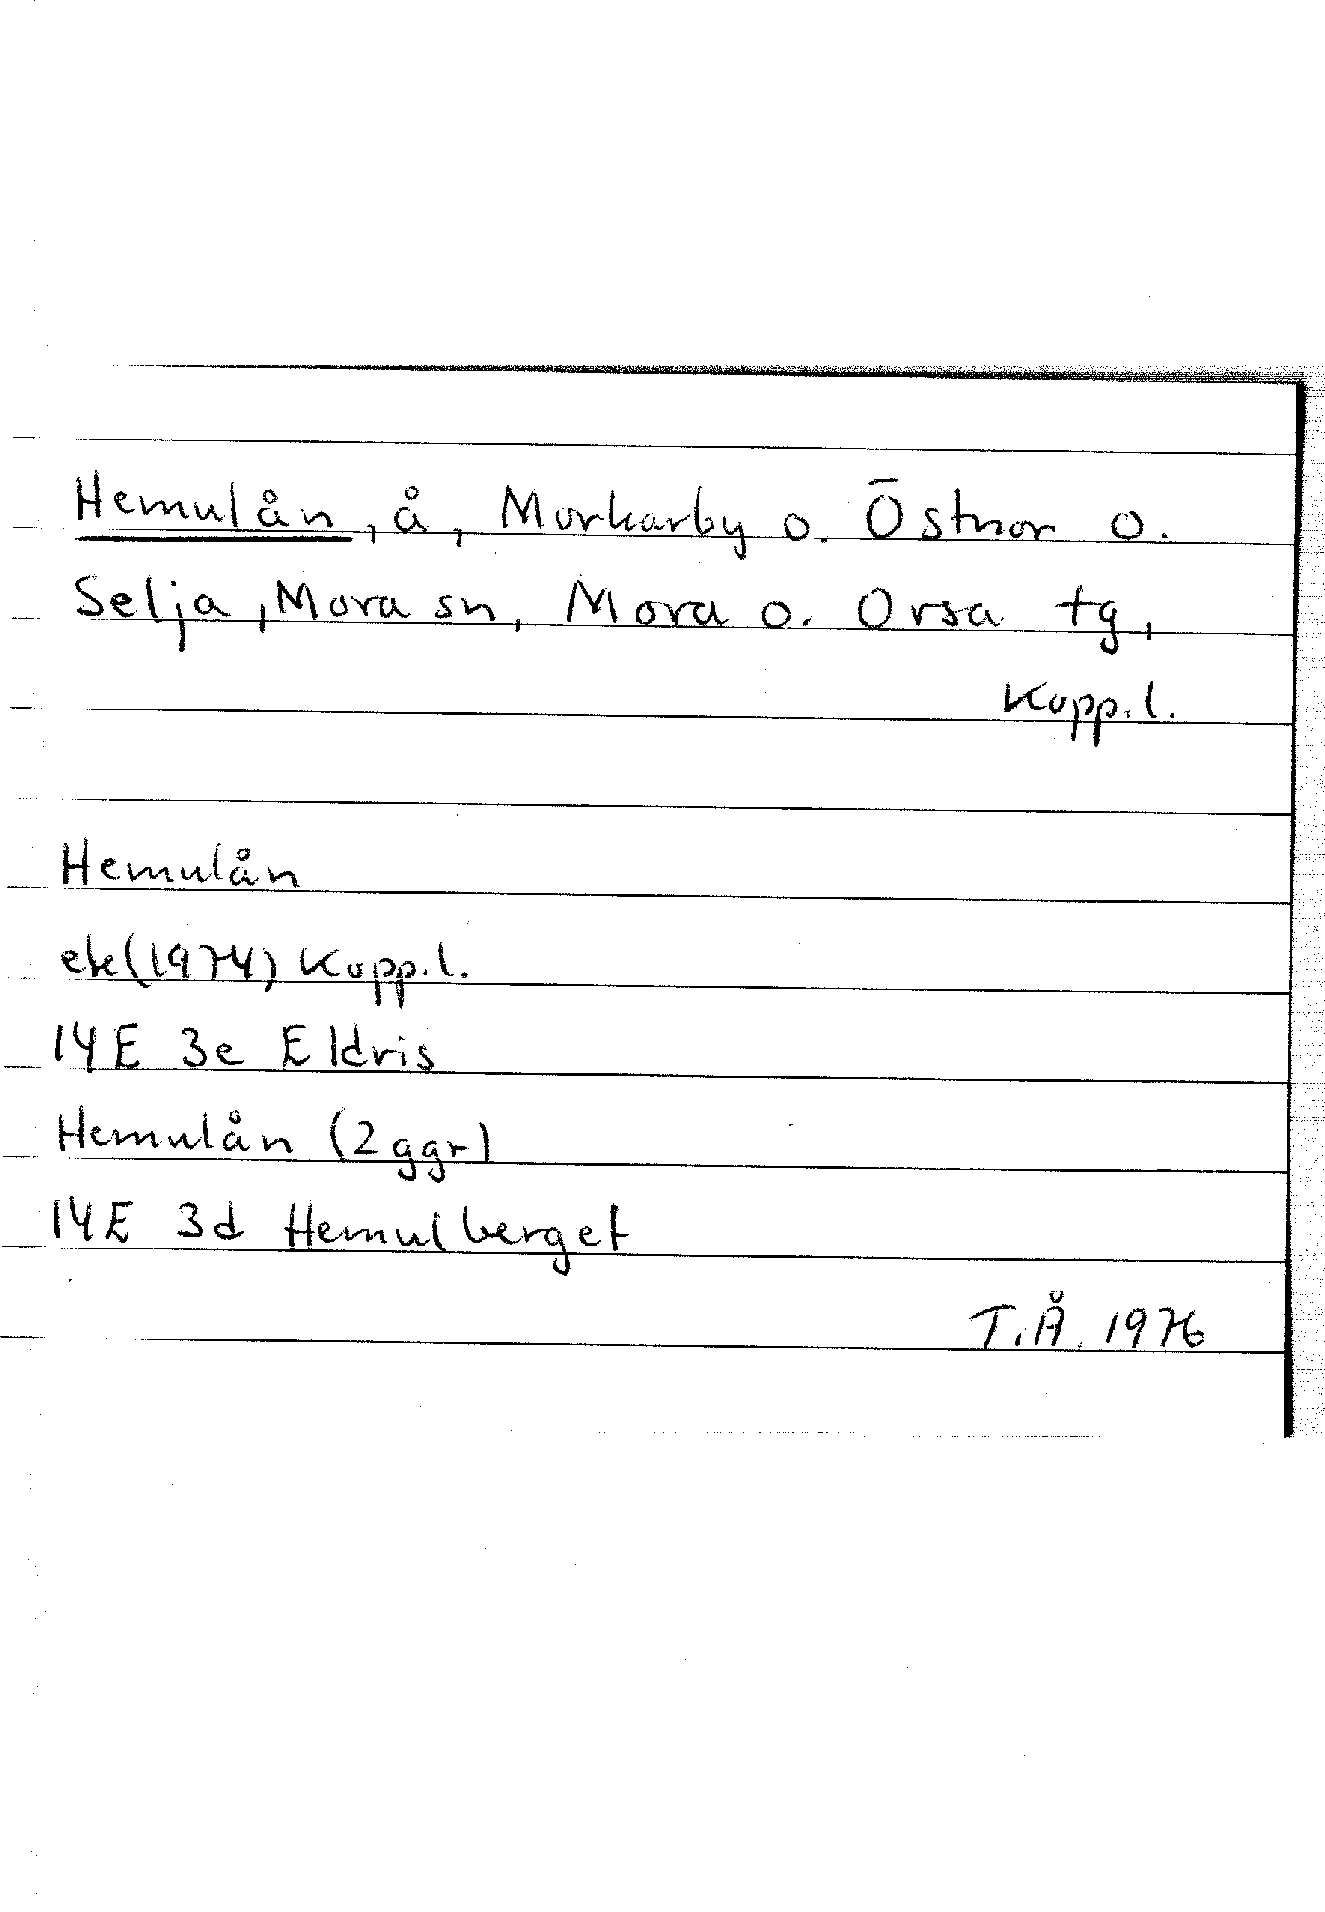 Hemulån, å, Morkarby o. Östnor o.
Selja, Mora sn, Mora o. Orsa tg,
Kopp.l.
Hemulån
ek(1974) Kopp.l.
14E 3e Eldris
Hemulån (2ggr)
14E 3d Hemulberget
T.Å. 1976